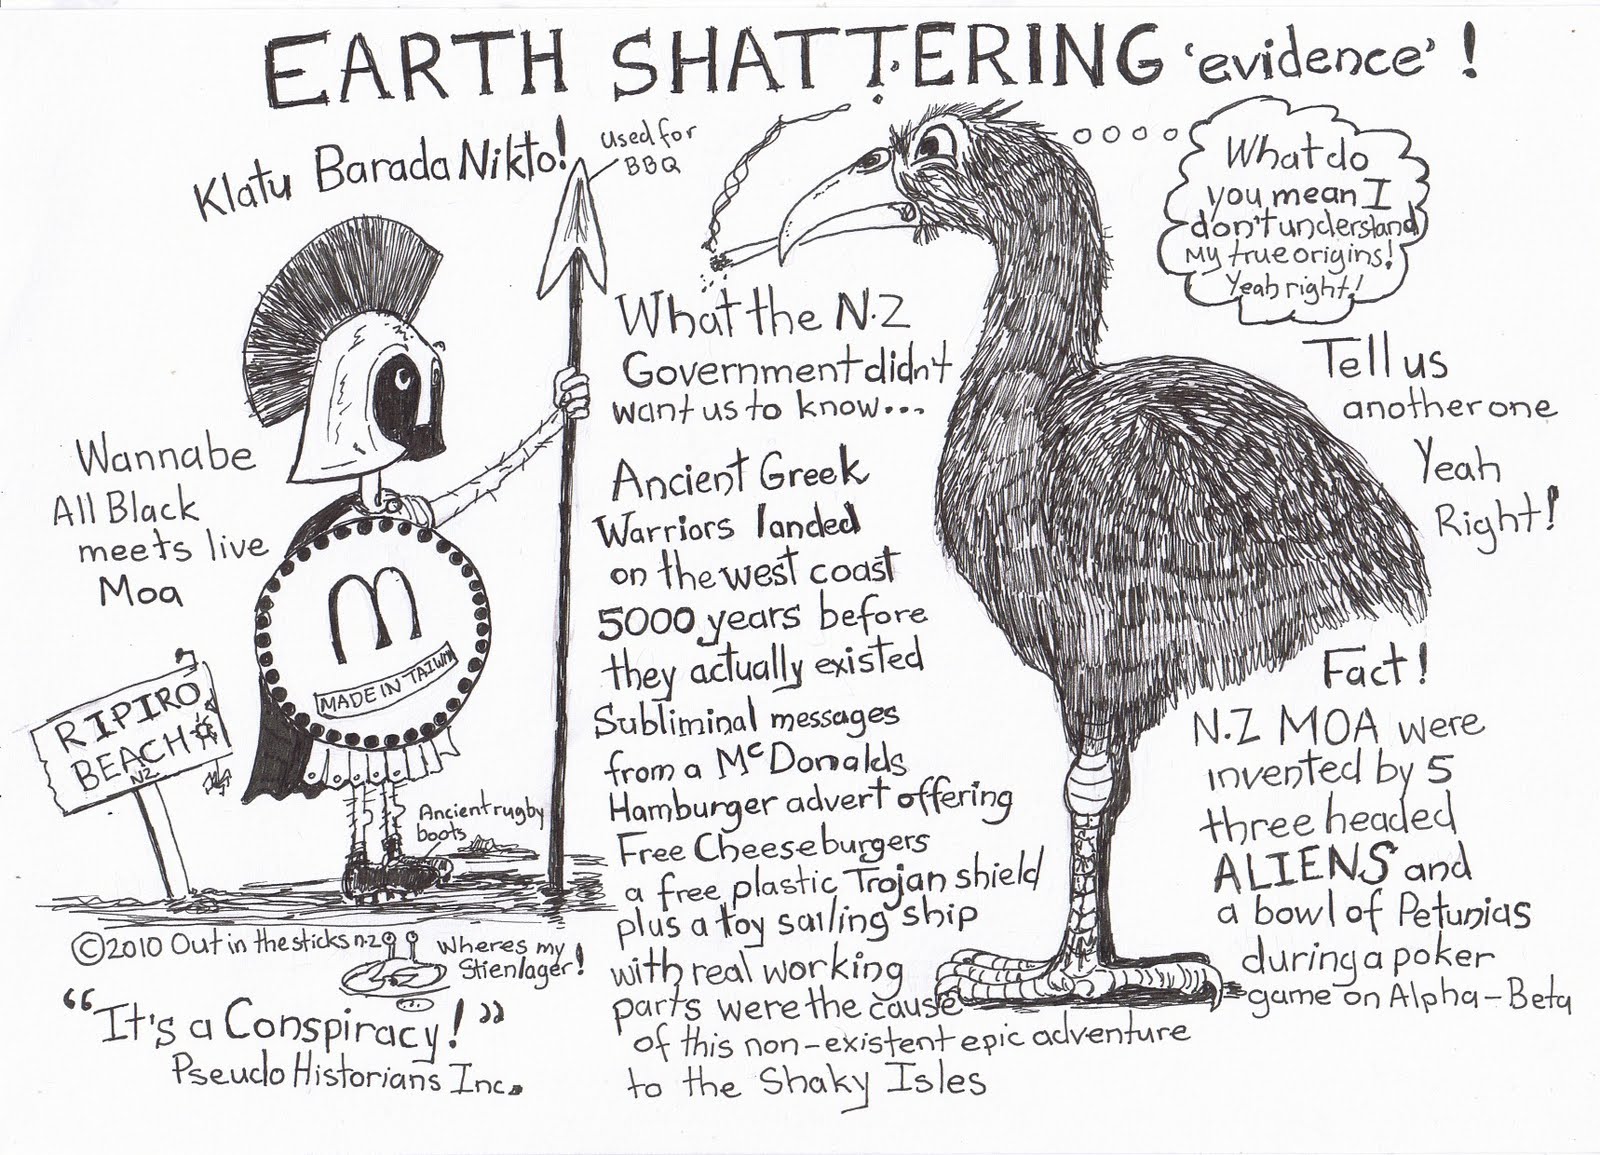 EARTH SHATTERING 'evidence' !
Klatu Barada Nikto!
used for
BBQ
What do
you mean I
don't understand
My true origins!
Yeah right!
What the N.Z
Government didn't
want us to know...
Tell us
another one
Yeah
Right!
Wannabe
All Black
meets live
Moa
Ancient Greek
Warriors landed
on the west coast
5000 years before
they actually existed
Subliminal messages
from a McDonalds
Hamburger advert offering
Free Cheeseburgers
a free plastic Trojan shield
plus a toy sailing ship
with real working
parts were the cause
of this non-existent epic adventure
to the Shaky Isles
m
MADE IN TAIWAN
RIPIRO
BEACH
NZ
Ancient rugby
boots
Fact!
N.Z MOA were
invented by 5
three headed
ALIENS and
a bowl of Petunias
during a poker
game on Alpha-Beta
©2010 Out in the sticks n.z
Wheres my
Stienlager!
"It's a Conspiracy!"
Pseudo Historians Inc.